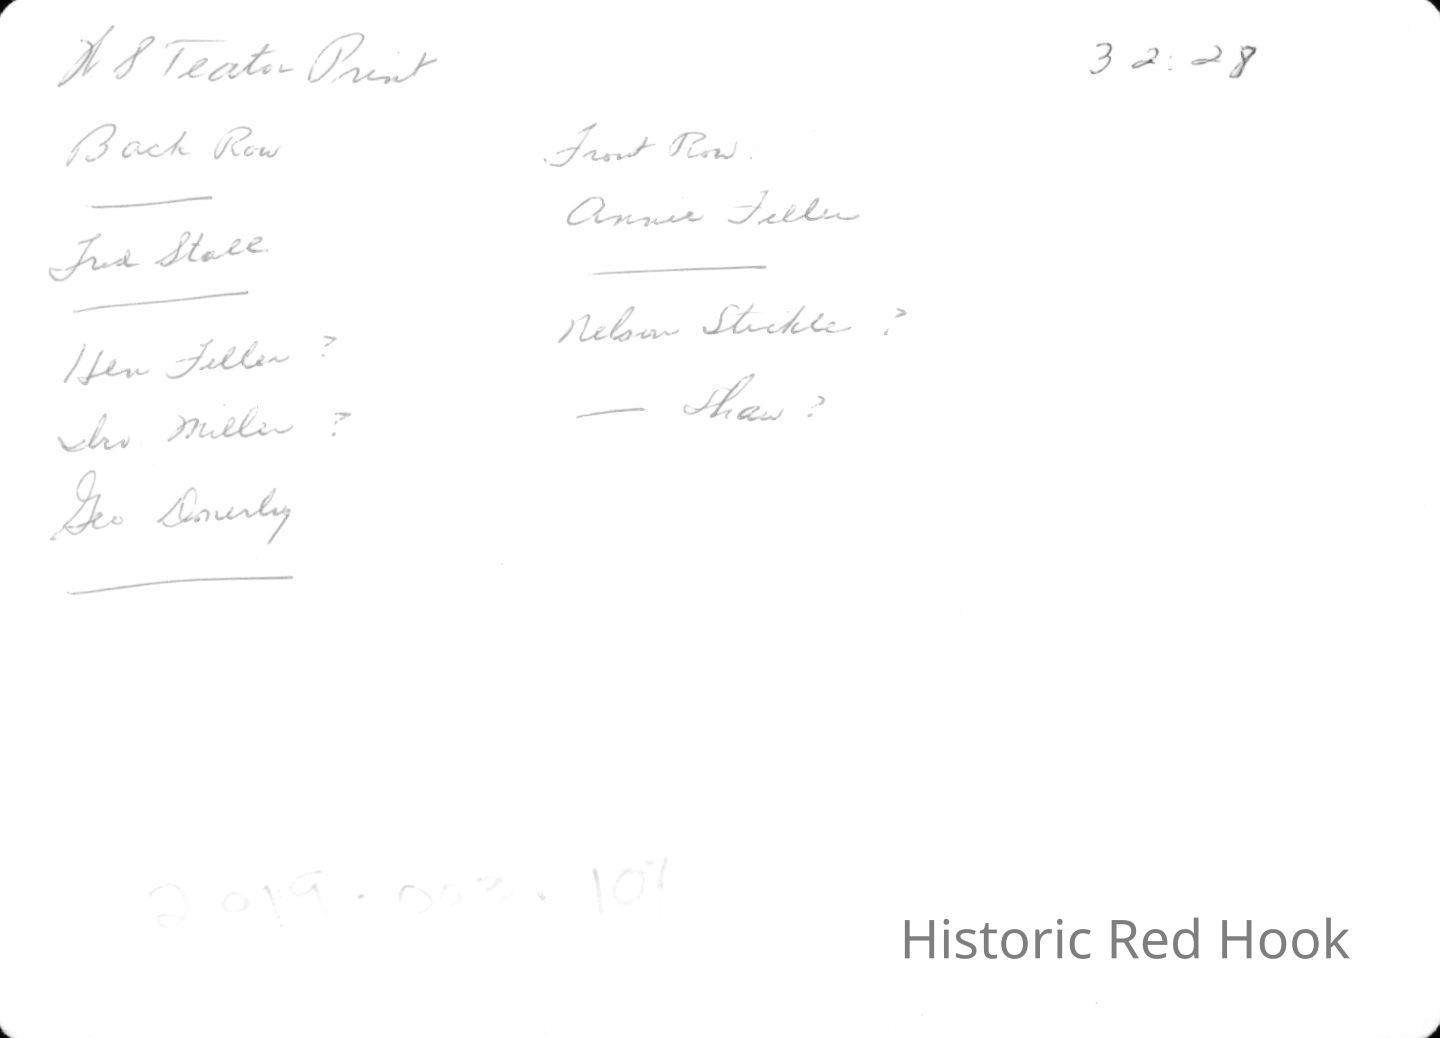 H S Teator Print
32:28
Back Row
Front Row:
Annie Feller
Fred Stall
Nelson Stickle ?
Hen Feller ?
— Shaw ?
Miller ?
Geo
2019.003.107
Historic Red Hook